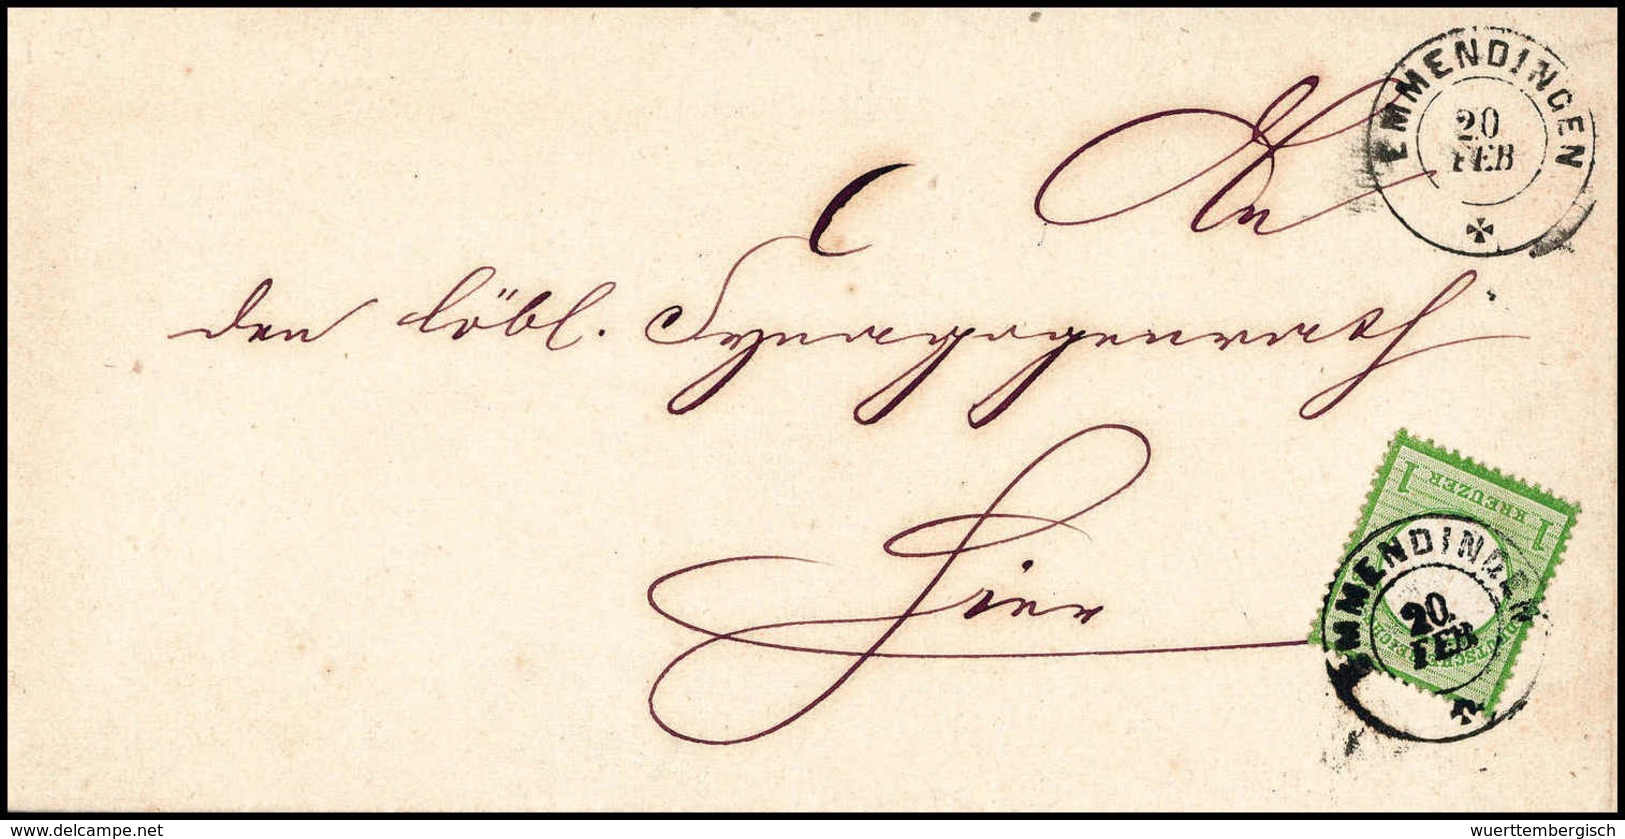 EMMENDINGEN
20
FEB
An
den löbl. Synagogenrath
Hier
1 KREUZER 1
EMMENDINGEN
20.
FEB
delcampe.net
wuerttembergisch